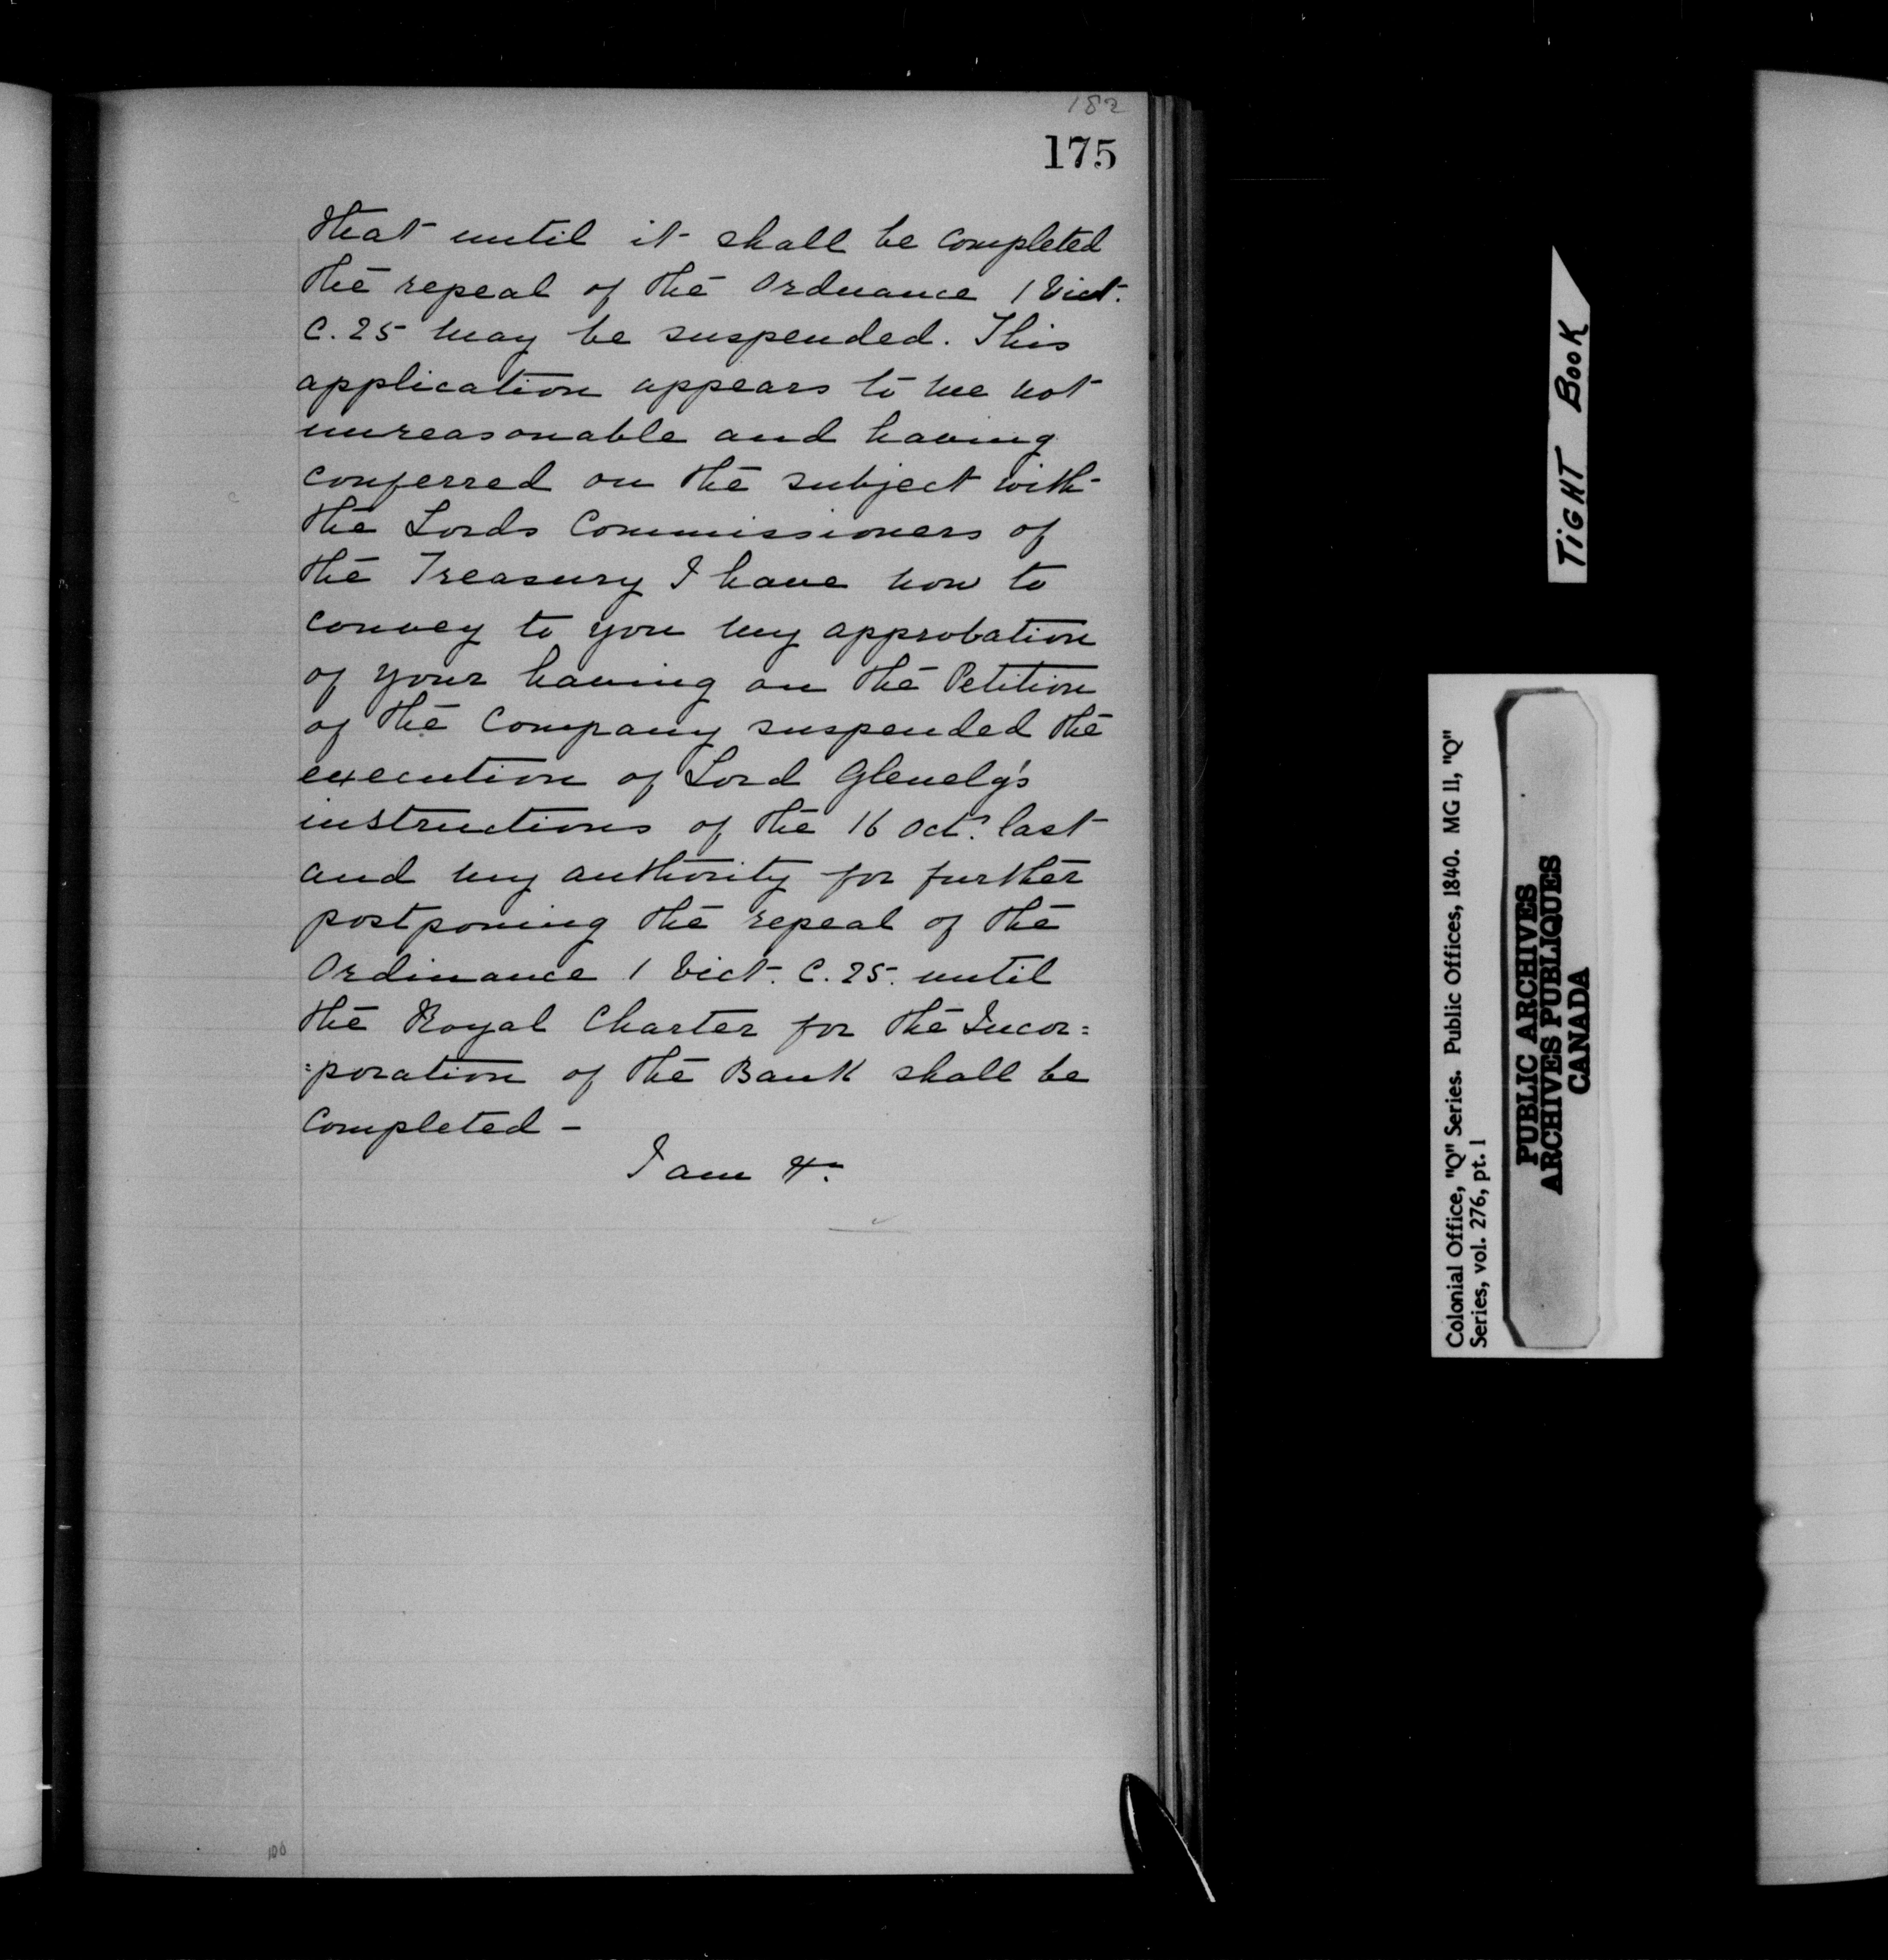 182
175
that until it shall be completed
the repeal of the Ordnance 1 Vict.
C. 25 may be suspended. This
application appears to me not
unreasonable and having
conferred on the subject with
the Lords Commissioners of
the Treasury I have now to
convey to you my approbation
of your having on the Petition
of the Company suspended the
execution of Lord Glenelg's
instructions of the 16 Octr. last
and my authority for further
postponing the repeal of the
Ordinance 1 Vict. C. 25. until
the Royal Charter for the Incor=
=poration of the Bank shall be
completed –
I am &c.
100
TIGHT BOOK
Colonial Office, "Q" Series. Public Offices, 1840. MG 11, "Q"
Series, vol. 276, pt. 1
PUBLIC ARCHIVES
ARCHIVES PUBLIQUES
CANADA